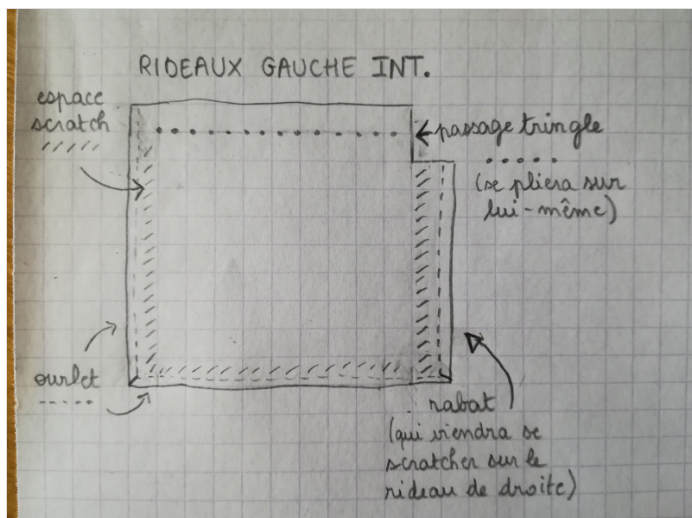 RIDEAUX GAUCHE INT.
espace
scratch
passage tringle
(se pliera sur
lui-même)
ourlet
rabat
(qui viendra se
scratcher sur le
rideau de droite)